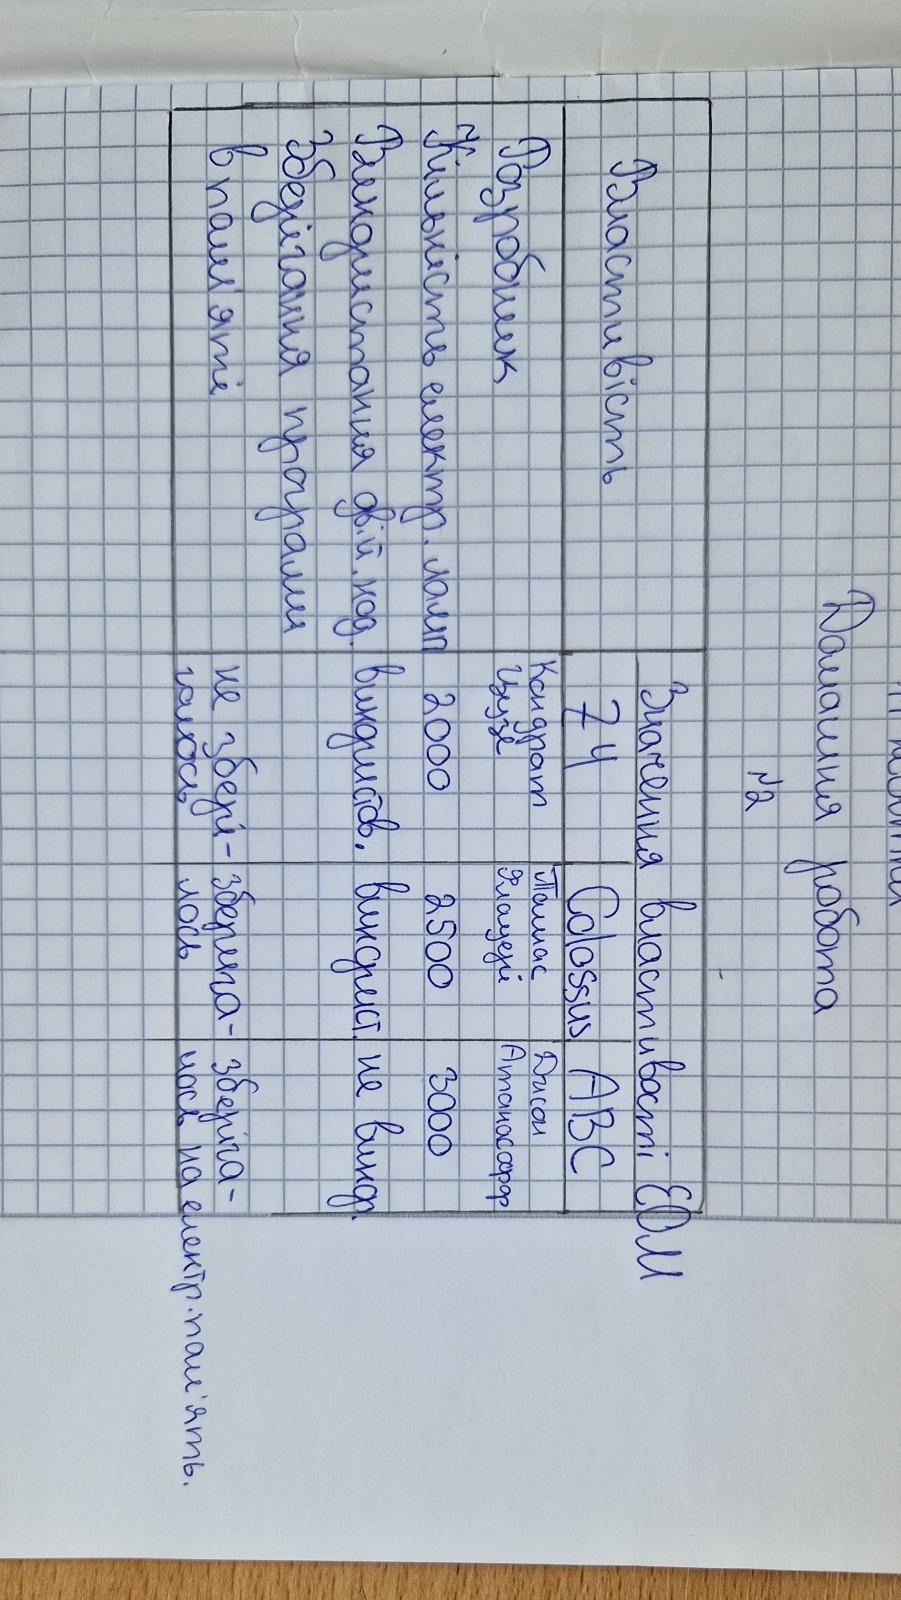 Домашня робота
№2
Властивість
Значення властивості ЕОМ
Z4
Colossus
ABC
Розробник
Кондрат
Цузе
Томас
Флауері
Джон
Атанасофф
Кількість електр. ламп
2000
2500
3000
Використання двій. код.
використов.
використ.
не викор.
Зберігання програми
в пам'яті
не збері-
галось
зберига-
лось
зберіга-
лось на електр. пам'ять.